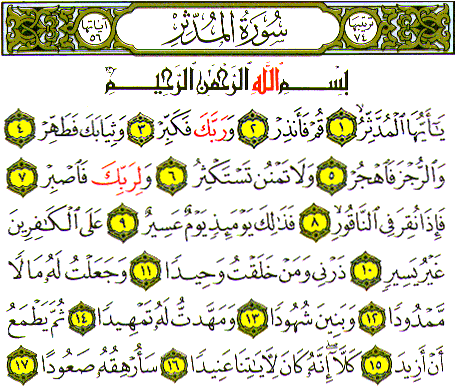 ترتيبها ٧٤ سُورَةُ المُدَّثِّر آياتها ٥٦
بِسْمِ اللَّهِ الرَّحْمَٰنِ الرَّحِيمِ
يَا أَيُّهَا الْمُدَّثِّرُ ١ قُمْ فَأَنذِرْ ٢ وَرَبَّكَ فَكَبِّرْ ٣ وَثِيَابَكَ فَطَهِّرْ ٤
وَالرُّجْزَ فَاهْجُرْ ٥ وَلَا تَمْنُن تَسْتَكْثِرُ ٦ وَلِرَبِّكَ فَاصْبِرْ ٧
فَإِذَا نُقِرَ فِي النَّاقُورِ ٨ فَذَٰلِكَ يَوْمَئِذٍ يَوْمٌ عَسِيرٌ ٩ عَلَى الْكَافِرِينَ
غَيْرُ يَسِيرٍ ١٠ ذَرْنِي وَمَنْ خَلَقْتُ وَحِيدًا ١١ وَجَعَلْتُ لَهُ مَالًا
مَّمْدُودًا ١٢ وَبَنِينَ شُهُودًا ١٣ وَمَهَّدتُّ لَهُ تَمْهِيدًا ١٤ ثُمَّ يَطْمَعُ
أَنْ أَزِيدَ ١٥ كَلَّا إِنَّهُ كَانَ لِآيَاتِنَا عَنِيدًا ١٦ سَأُرْهِقُهُ صَعُودًا ١٧